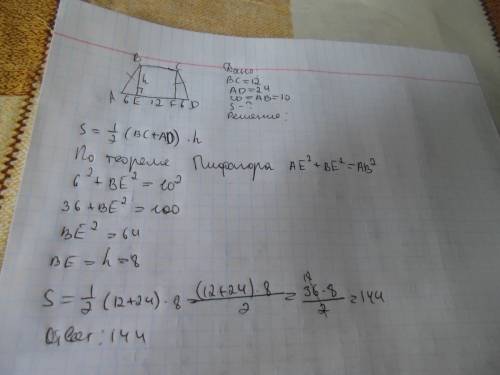 B C
h
A 6 E 12 F 6 D
Дано:
BC=12
AD=24
CD=AB=10
S-?
Решение:
S = 1/2 (BC+AD) · h
По теореме Пифагора AE²+BE²=AB²
6²+BE²=10²
36+BE²=100
BE²=64
BE=h=8
S = 1/2 (12+24) · 8 = (12+24)·8/2 = 36·8/2 = 144
18
Ответ: 144